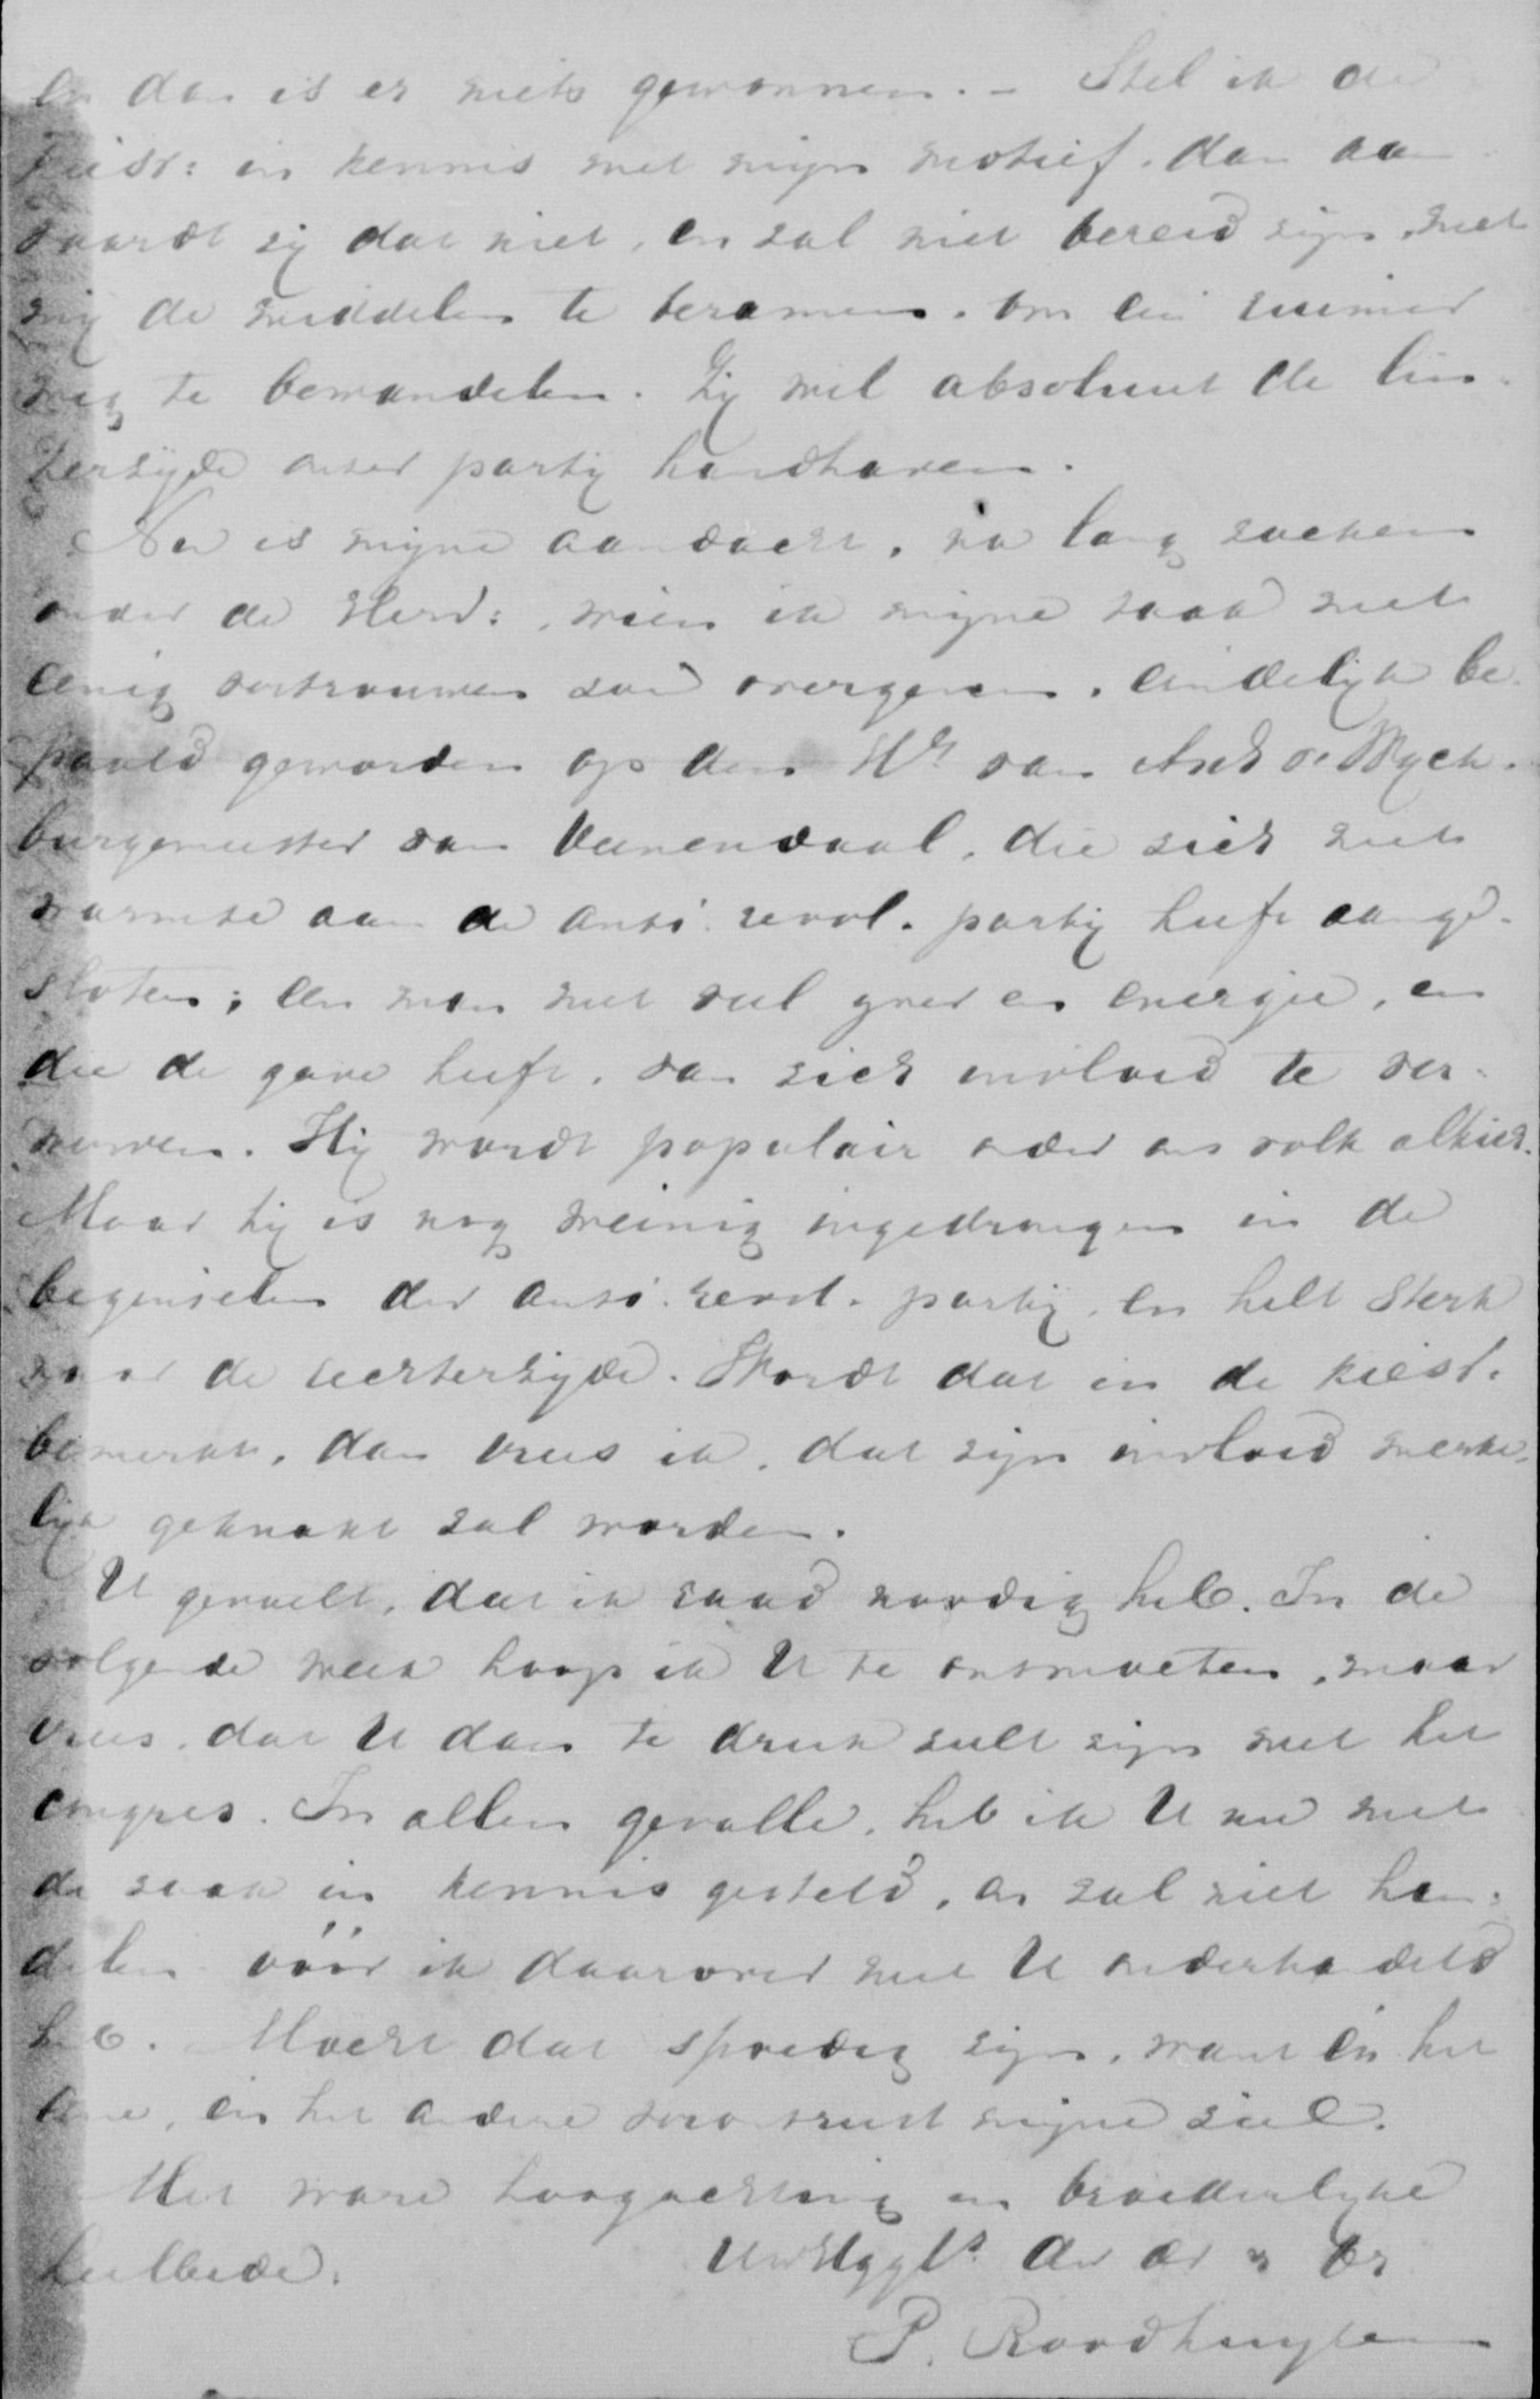 en dan is er niets gewonnen. – Stel ik de
Kiesv: in kennis met mijn motief, dan aan
vaardt zij dat niet, en zal niet bereid zijn, met
mij de middelen te beramen, om een ruimer
weg te bewandelen. Zij wil absoluut de lin-
kerzijde onzer partij handhaven.
Nu is mijne aandacht, na lang zoeken
onder de Herv:, wien ik mijne taak met
eenig vertrouwen zou overgeven, eindelijk be-
paald geworden op den Hr van Asch v. Wyck.
burgemeester van Veenendaal, die zich met
warmte aan de anti. revol. partij heeft aange-
sloten; een man met veel yver en energie, en
die de gave heeft, van zich invloed te ver-
werven. Hij wordt populair onder ons volk alhier.
Maar hij is nog weinig ingedrongen in de
beginselen der anti. revol. partij, en helt sterk
naar de rechterzijde. Wordt dat in de kiesv.
bemerkt, dan vrees ik, dat zijn invloed merke-
lijk geknakt zal worden.
U gevoelt, dat ik raad noodig heb. In de
volgende week hoop ik U te ontmoeten, maar
vrees, dat U dan te druk zult zijn met het
congres. In allen gevalle, heb ik U nu met
de zaak in kennis gesteld, en zal niet han-
delen vóór ik daarover met U onderhandeld
heb. Mocht dat spoedig zijn, want én het
eene, én het andere verontrust mijne ziel.
Met ware hoogachting en broederlijke
heilbede.
UwHggb. dw dr &
P. Roodhuyzen